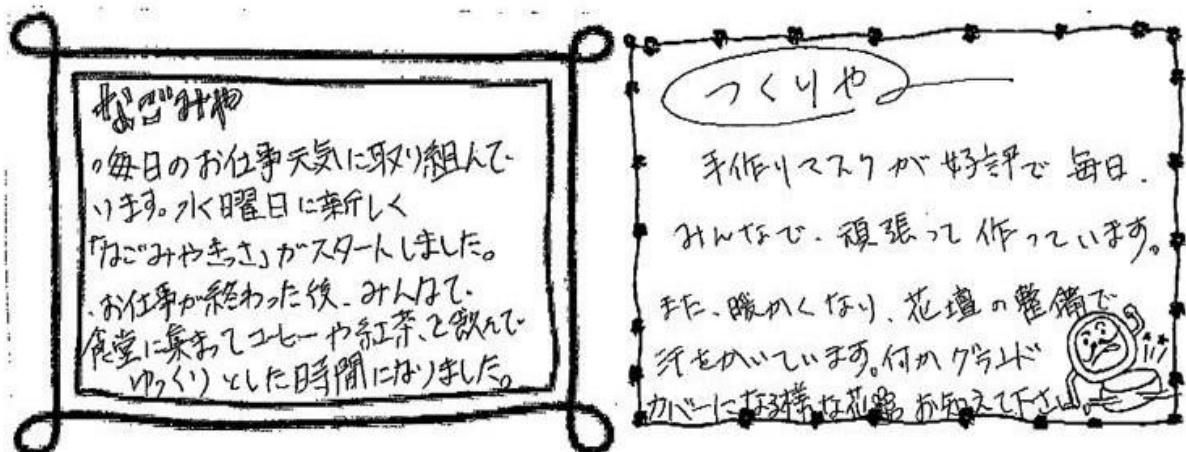 なごみ物
。毎日のお仕事元気に取り組んで
います。水曜日に新しく
「なごみやきっさ」がスタートしました。
、お仕事が終わった後、みんなで、
食堂に集まってコーヒーや紅茶、を飲んで
ゆっくりとした時間になりました。
つくりや
手作りマスクが好評で毎日、
みんなで、頑張って作っています。
また、暖かくなり、花壇の整備で
汗をかいています。何かグランド
カバーになる様な花 お知えて下さい。